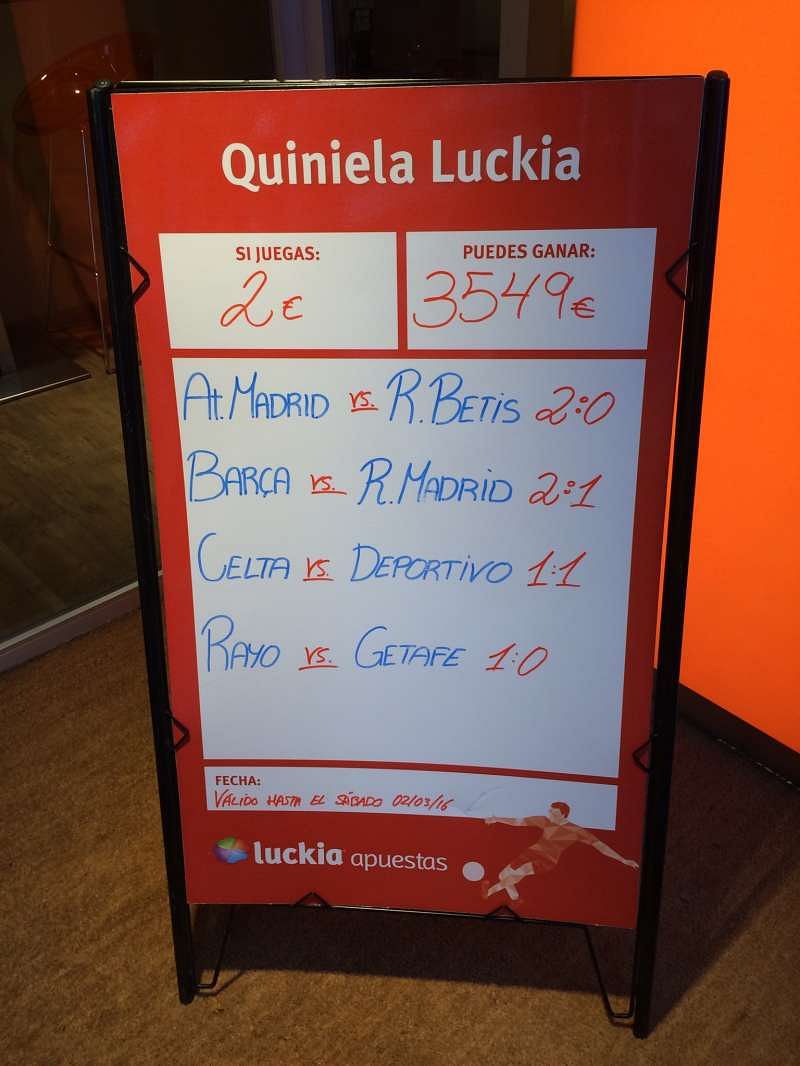 Quiniela Luckia
SI JUEGAS:
2€
PUEDES GANAR:
3549€
At. MADRID vs. R. BETIS 2:0
BARÇA vs. R. MADRID 2:1
CELTA vs. DEPORTIVO 1:1
RAYO vs. GETAFE 1:0
FECHA:
VÁLIDO HASTA EL SÁBADO 02/03/16
luckia apuestas